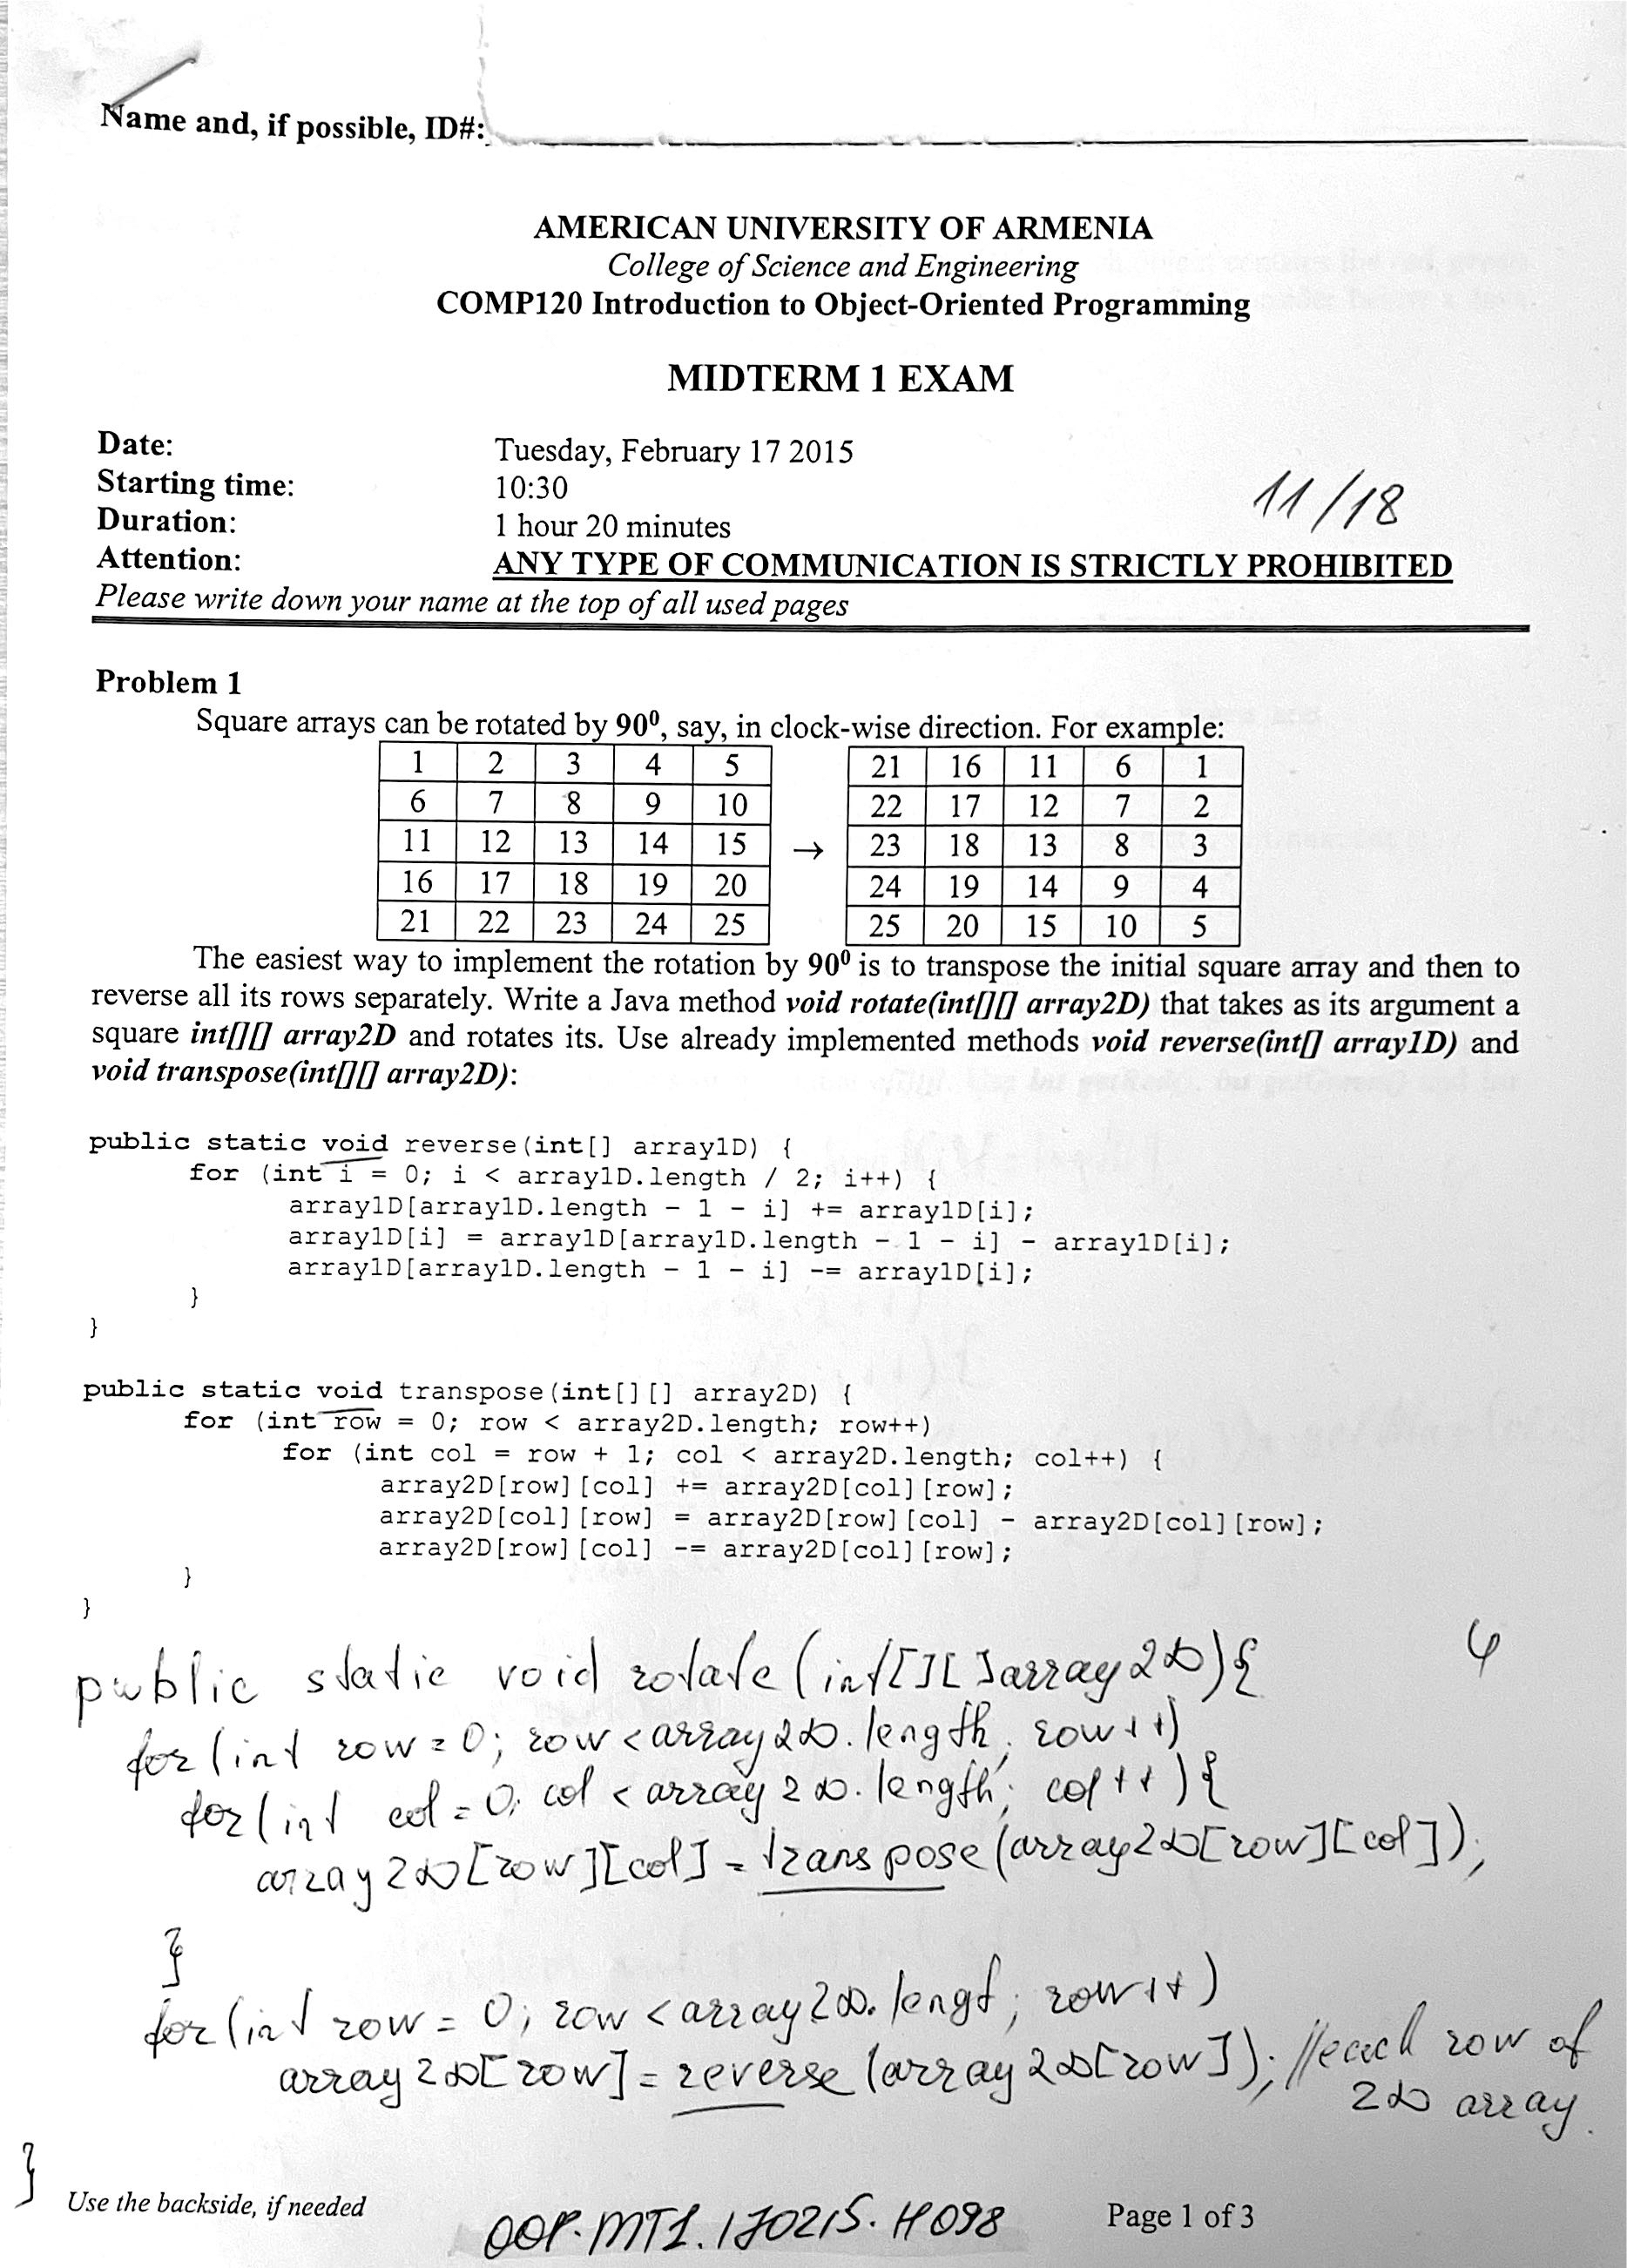 Name and, if possible, ID#:
AMERICAN UNIVERSITY OF ARMENIA
College of Science and Engineering
COMP120 Introduction to Object-Oriented Programming
MIDTERM 1 EXAM
Date: Tuesday, February 17 2015
Starting time: 10:30
11/18
Duration: 1 hour 20 minutes
Attention: ANY TYPE OF COMMUNICATION IS STRICTLY PROHIBITED
Please write down your name at the top of all used pages
Problem 1
Square arrays can be rotated by 90⁰, say, in clock-wise direction. For example:
1 2 3 4 5 21 16 11 6 1
6 7 8 9 10 22 17 12 7 2
11 12 13 14 15 → 23 18 13 8 3
16 17 18 19 20 24 19 14 9 4
21 22 23 24 25 25 20 15 10 5
The easiest way to implement the rotation by 90⁰ is to transpose the initial square array and then to
reverse all its rows separately. Write a Java method void rotate(int[][] array2D) that takes as its argument a
square int[][] array2D and rotates its. Use already implemented methods void reverse(int[] array1D) and
void transpose(int[][] array2D):
public static void reverse(int[] array1D) {
for (int i = 0; i < array1D.length / 2; i++) {
array1D[array1D.length - 1 - i] += array1D[i];
array1D[i] = array1D[array1D.length - 1 - i] - array1D[i];
array1D[array1D.length - 1 - i] -= array1D[i];
}
}
public static void transpose(int[][] array2D) {
for (int row = 0; row < array2D.length; row++)
for (int col = row + 1; col < array2D.length; col++) {
array2D[row][col] += array2D[col][row];
array2D[col][row] = array2D[row][col] - array2D[col][row];
array2D[row][col] -= array2D[col][row];
}
}
public static void rotate(int[][]array2D){
for(int row=0; row<array2D.length; row++)
for(int col=0; col<array2D.length; col++){
array2D[row][col]=transpose(array2D[row][col]);
}
for(int row=0; row<array2D.lengt; row++)
array2D[row]=reverse(array2D[row]); //each row of
2D array.
}
Use the backside, if needed
OOP.MT1.170215.H098
Page 1 of 3